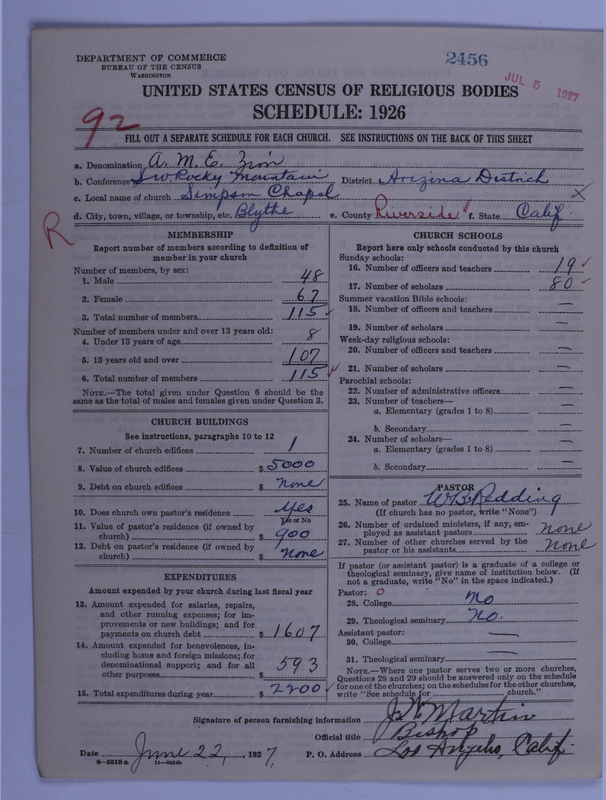 DEPARTMENT OF COMMERCE
BUREAU OF THE CENSUS
WASHINGTON
2456
JUL 5 1927
UNITED STATES CENSUS OF RELIGIOUS BODIES
SCHEDULE: 1926
92
FILL OUT A SEPARATE SCHEDULE FOR EACH CHURCH. SEE INSTRUCTIONS ON THE BACK OF THIS SHEET
a. Denomination A. M. E. Zion
b. Conference S.W. Rocky Mountain District Arizona District
c. Local name of church Simpson Chapel X
d. City, town, village, or township, etc. Blythe e. County Riverside f. State Calif.
R
MEMBERSHIP
Report number of members according to definition of
member in your church
Number of members, by sex:
1. Male 48
2. Female 67
3. Total number of members 115
Number of members under and over 13 years old:
4. Under 13 years of age 8
5. 13 years old and over 107
6. Total number of members 115
NOTE.—The total given under Question 6 should be
the same as the total of males and females given under Question 3.
CHURCH BUILDINGS
See instructions, paragraphs 10 to 12
7. Number of church edifices 1
8. Value of church edifices $ 5000
9. Debt on church edifices $ none
10. Does church own pastor's residence yes
Yes or No
11. Value of pastor's residence (if owned by
church) $ 900
12. Debt on pastor's residence (if owned by
church) $ none
EXPENDITURES
Amount expended by your church during last fiscal year
13. Amount expended for salaries, repairs,
and other running expenses; for im-
provements or new buildings; and for
payments on church debt $ 1607
14. Amount expended for benevolences, in-
cluding home and foreign missions; for
denominational support; and for all
other purposes $ 593
15. Total expenditures during year $ 2200
CHURCH SCHOOLS
Report here only schools conducted by this church
Sunday schools:
16. Number of officers and teachers 19
17. Number of scholars 80
Summer vacation Bible schools:
18. Number of officers and teachers —
19. Number of scholars —
Week-day religious schools:
20. Number of officers and teachers —
21. Number of scholars —
Parochial schools:
22. Number of administrative officers —
23. Number of teachers—
a. Elementary (grades 1 to 8) —
b. Secondary —
24. Number of scholars—
a. Elementary (grades 1 to 8) —
b. Secondary —
PASTOR
25. Name of pastor W B Redding
(If church has no pastor, write "None")
26. Number of ordained ministers, if any, em-
ployed as assistant pastors none
27. Number of other churches served by the
pastor or his assistants none
If pastor (or assistant pastor) is a graduate of a college or
theological seminary, give name of institution below. (If
not a graduate, write "No" in the space indicated.)
Pastor: 0
28. College no
29. Theological seminary No.
Assistant pastor:
30. College —
31. Theological seminary —
NOTE.—Where one pastor serves two or more churches,
Questions 28 and 29 should be answered only on the schedule
for one of the churches; on the schedules for the other churches,
write "See schedule for church."
Signature of person furnishing information J. W. Martin
Official title Bishop
Date June 22, 1927. P. O. Address Los Angeles, Calif.